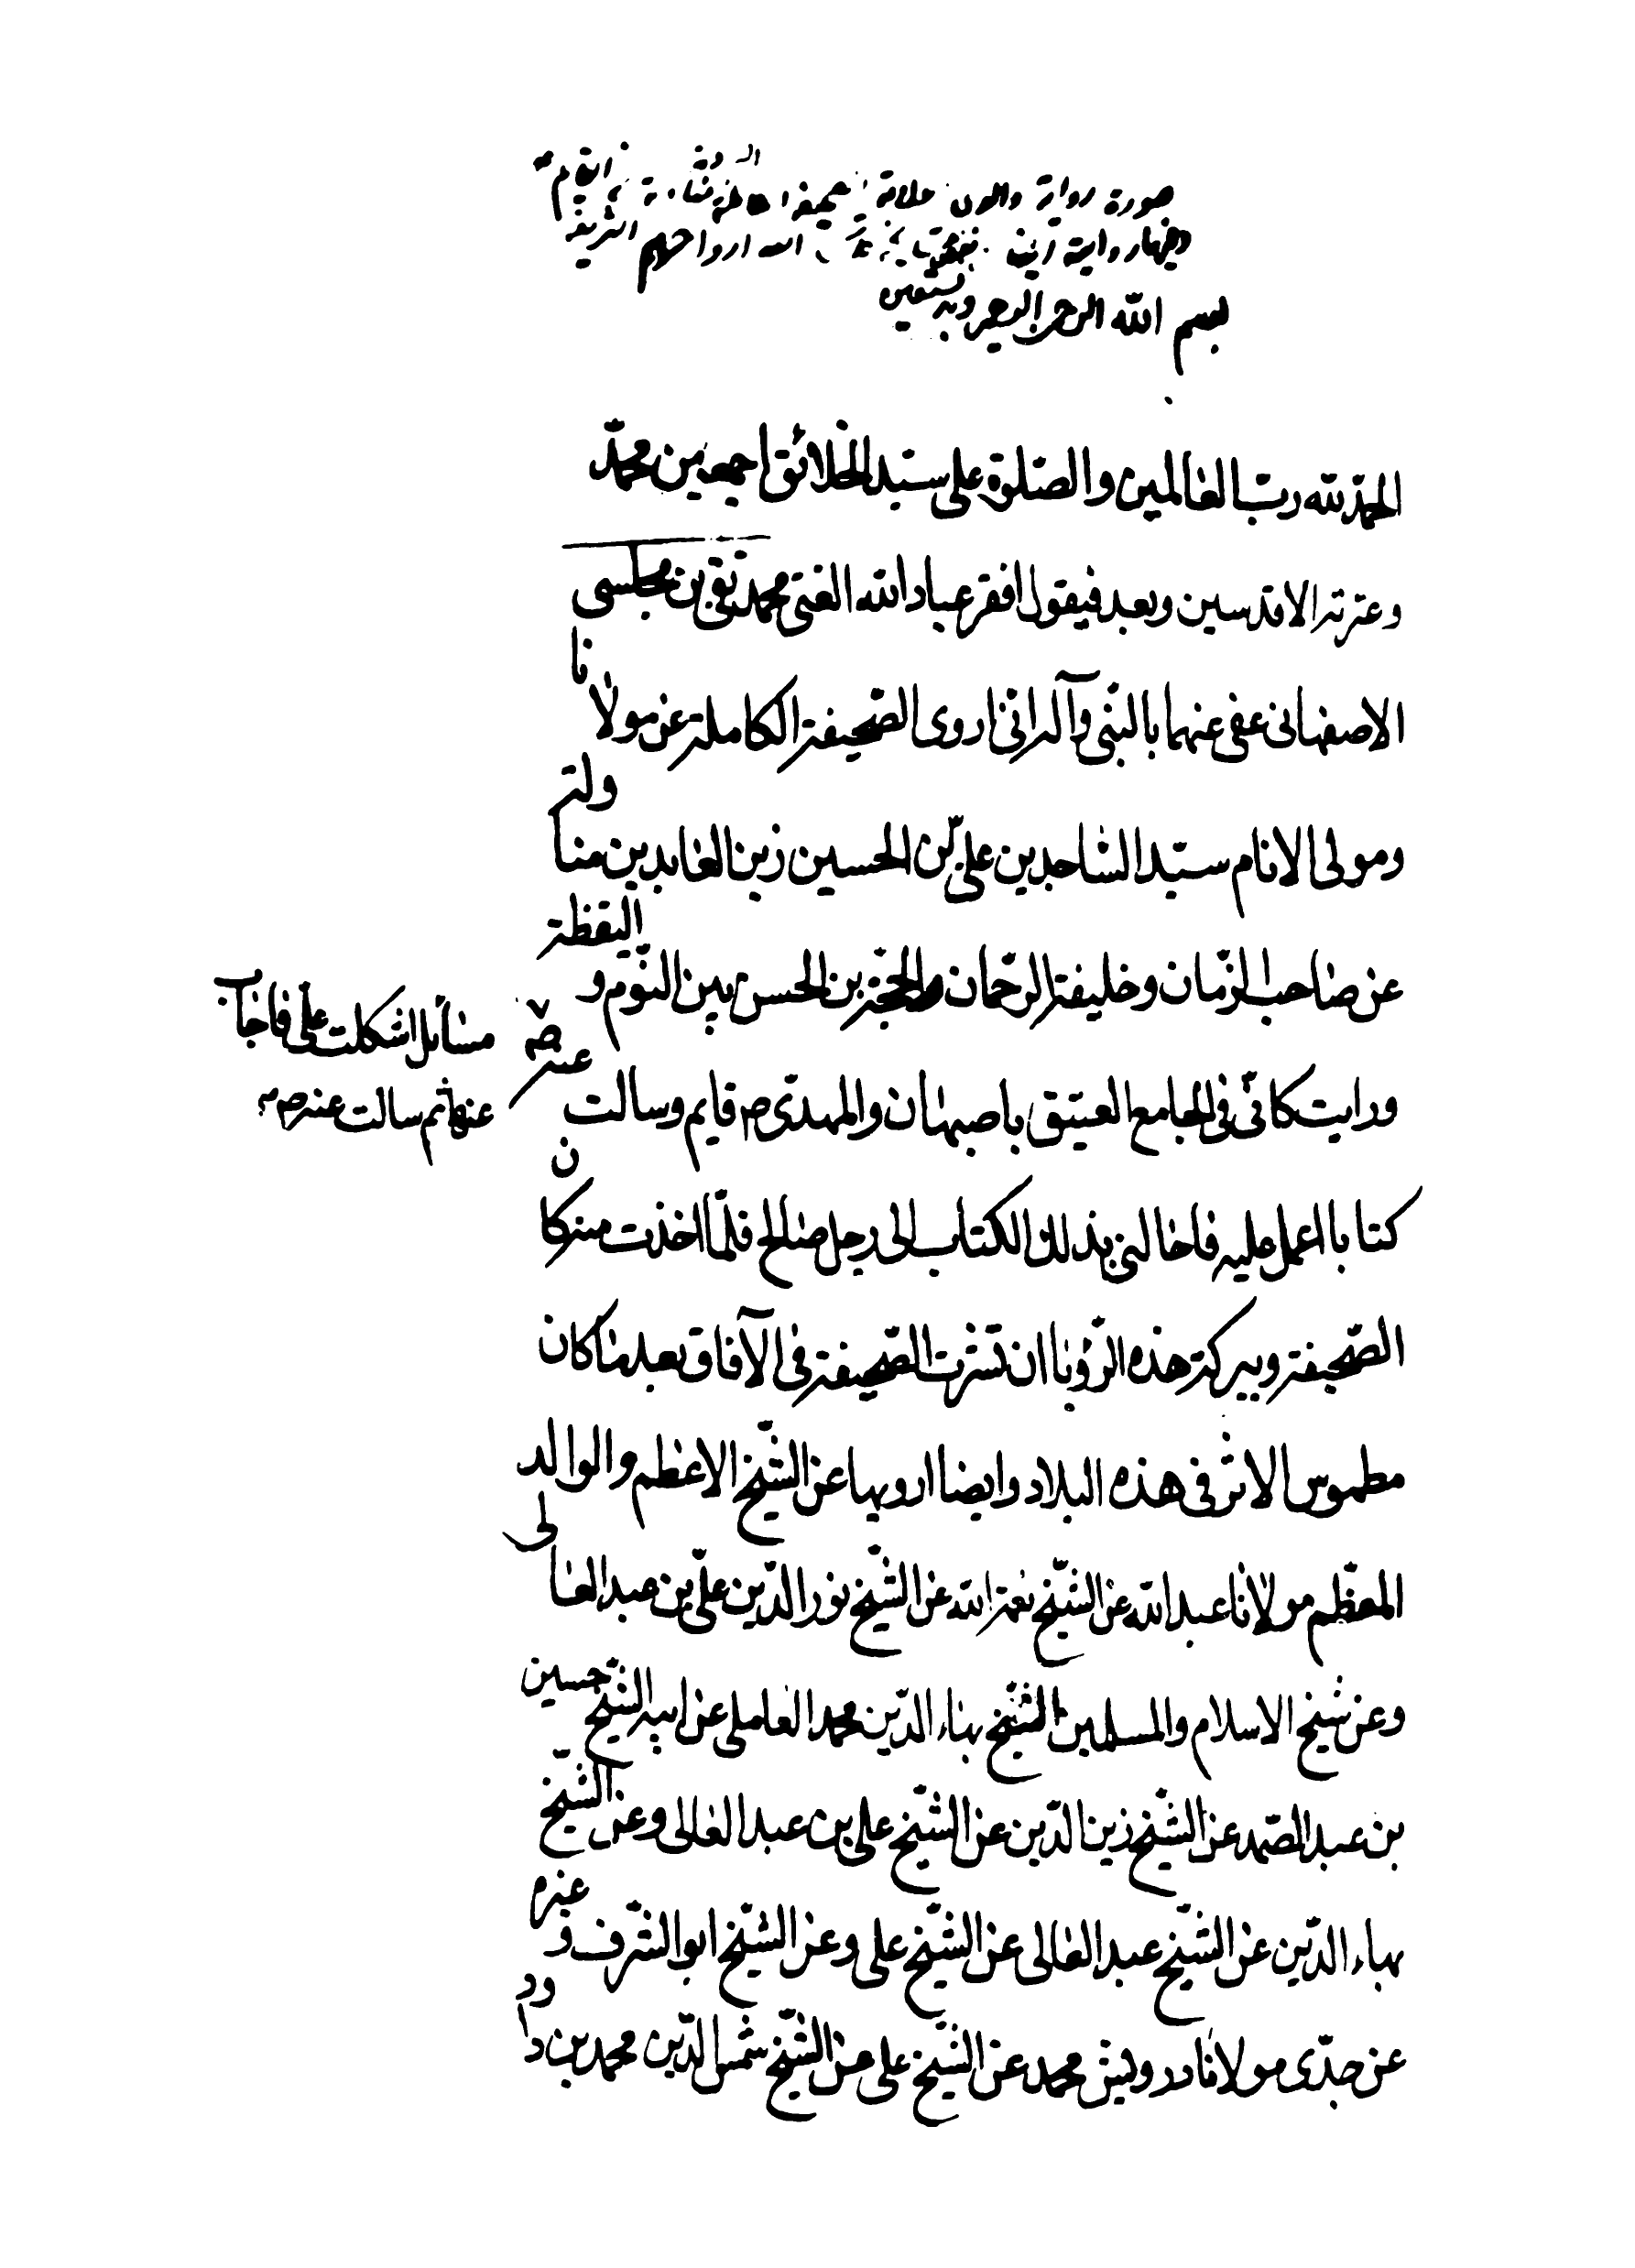 صورة رواية
الله ارواحهم الشريفة
بسم الله الرحمن الرحيم وبه نستعين
الحمد لله رب العالمين والصلوة على سيد الخلائق اجمعين محمد
وعترته الاقدسين وبعد فيقول افقر عباد الله الغنى محمد تقى بن مجلسى
الاصفهانى عفى عنهما بالنبى وآله انى اروى الصحيفة الكاملة عن مولانا
ومولى الانام سيد الساجدين على بن الحسين زين العابدين مناولة
عن صاحب الزمان وخليفة الرحمان الحجة بن الحسن بين النوم واليقظة
ورايت كانى فى الجامع العتيق باصبهان والمهدى ص قايم وسالت عنه ص
مسائل اشكلت على فاجاب
عنها ثم سالت عنه ص
كتابا اعمل عليه فاحالنى بذلك الكتاب الى رجل صالح فلما اخذت منه كان
الصحيفة وببركة هذه الرؤيا انتشرت الصحيفة فى الآفاق بعد ما كان
مطموس الاثر فى هذه البلاد وايضا ارويها عن الشيخ الاعظم والوالد
المعظم مولانا عبد الله عن الشيخ نعمة الله عن الشيخ نور الدين على بن عبد العالى
وعن شيخ الاسلام والمسلمين الشيخ بهاء الدين محمد العاملى عن ابيه الشيخ حسين
بن عبد الصمد عن الشيخ زين الدين عن الشيخ على بن عبد العالى وعن الشيخ
بهاء الدين عن الشيخ عبد العالى عن الشيخ على وعن الشيخ ابو الشرف وغيره
عن جدى مولانا درويش محمد عن الشيخ على عن الشيخ شمس الدين محمد بن داود